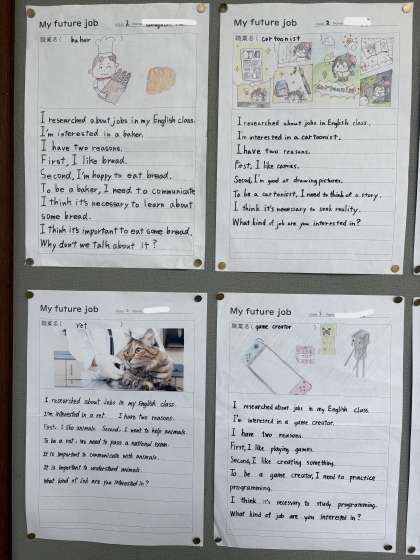 My future job
職業名( baker )
I researched about jobs in my English class.
I'm interested in a baker.
I have two reasons.
First, I like bread.
Second, I'm happy to eat bread.
To be a baker, I need to communicate
I think it's necessary to learn about
some bread.
I think it's important to eat some bread.
Why don't we talk about it ?
My future job
職業名( cartoonist
I researched about jobs in my English class.
I'm interested in a cartoonist.
I have two reasons.
First, I like comics.
Second, I'm good at drawing pictures.
To be a cartoonist, I need to think of a story.
I think it's necessary to seek reality.
What kind of job are you interested in?
My future job
職業名( vet )
I researched about jobs in my English class.
I'm interested in a vet. I have two reasons.
First, I like animals. Second, I want to help animals.
To be a vet, you need to pass a national exam.
It is important to communicate with animals.
It is important to understand animals.
What kind of job are you interested in?
My future job
職業名( game creator )
I researched about jobs in my English class.
I'm interested in a game creator.
I have two reasons.
First, I like playing games.
Second, I like creating something.
To be a game creator, I need to practice
programming.
I think it's necessary to study programming.
What kind of job are you interested in?